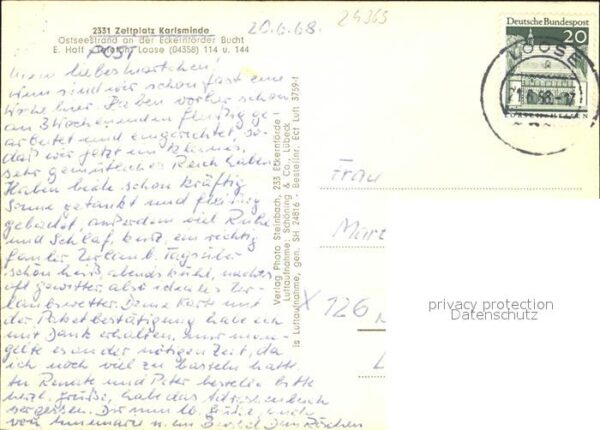 2331 Zeltplatz Karlsminde
Ostseestrand an der Eckernförder Bucht
E. Haft Telefon: Loose (04358) 114 u. 144
20.6.68.
24365
POST
Deutsche Bundespost
20
LOOSE
LORSCH/HESSEN
wir sind wir schon fast eine
Woche hier. Haben vorher schon
an 3 Wochenenden fleißig ge-
arbeitet und eingerichtet, so
daß wir jetzt ein kleines,
sehr gemütliches Reich haben.
Haben heute schon kräftig
Sonne getankt und fleißig
gebadet, außerdem viel Ruhe
und Schlaf, kurz, ein richtig
fauler Urlaub. Tagsüber
schön heiß abends kühl, nachts
oft Gewitter also ideales Ur-
laubswetter. Deine Karte mit
der Paketbestätigung habe ich
mit Dank erhalten, nur man-
gelte es an der nötigen Zeit, da
ich noch viel zu basteln hatte.
An Renate und Peter bestelle bitte
herzl. Grüße, habe das Adressenbuch
vergessen. Dir nun 10 Grüße, auch
von Annemarie u. ein
Verlag Photo Steinbach, 233 Eckernförde
Luftaufnahme: Schöning & Co., Lübeck
is Luftaufnahme, gen. SH 24816 - Bestellnr. Ect Luft 3759-f
Frau
X 126
privacy protection
Datenschutz